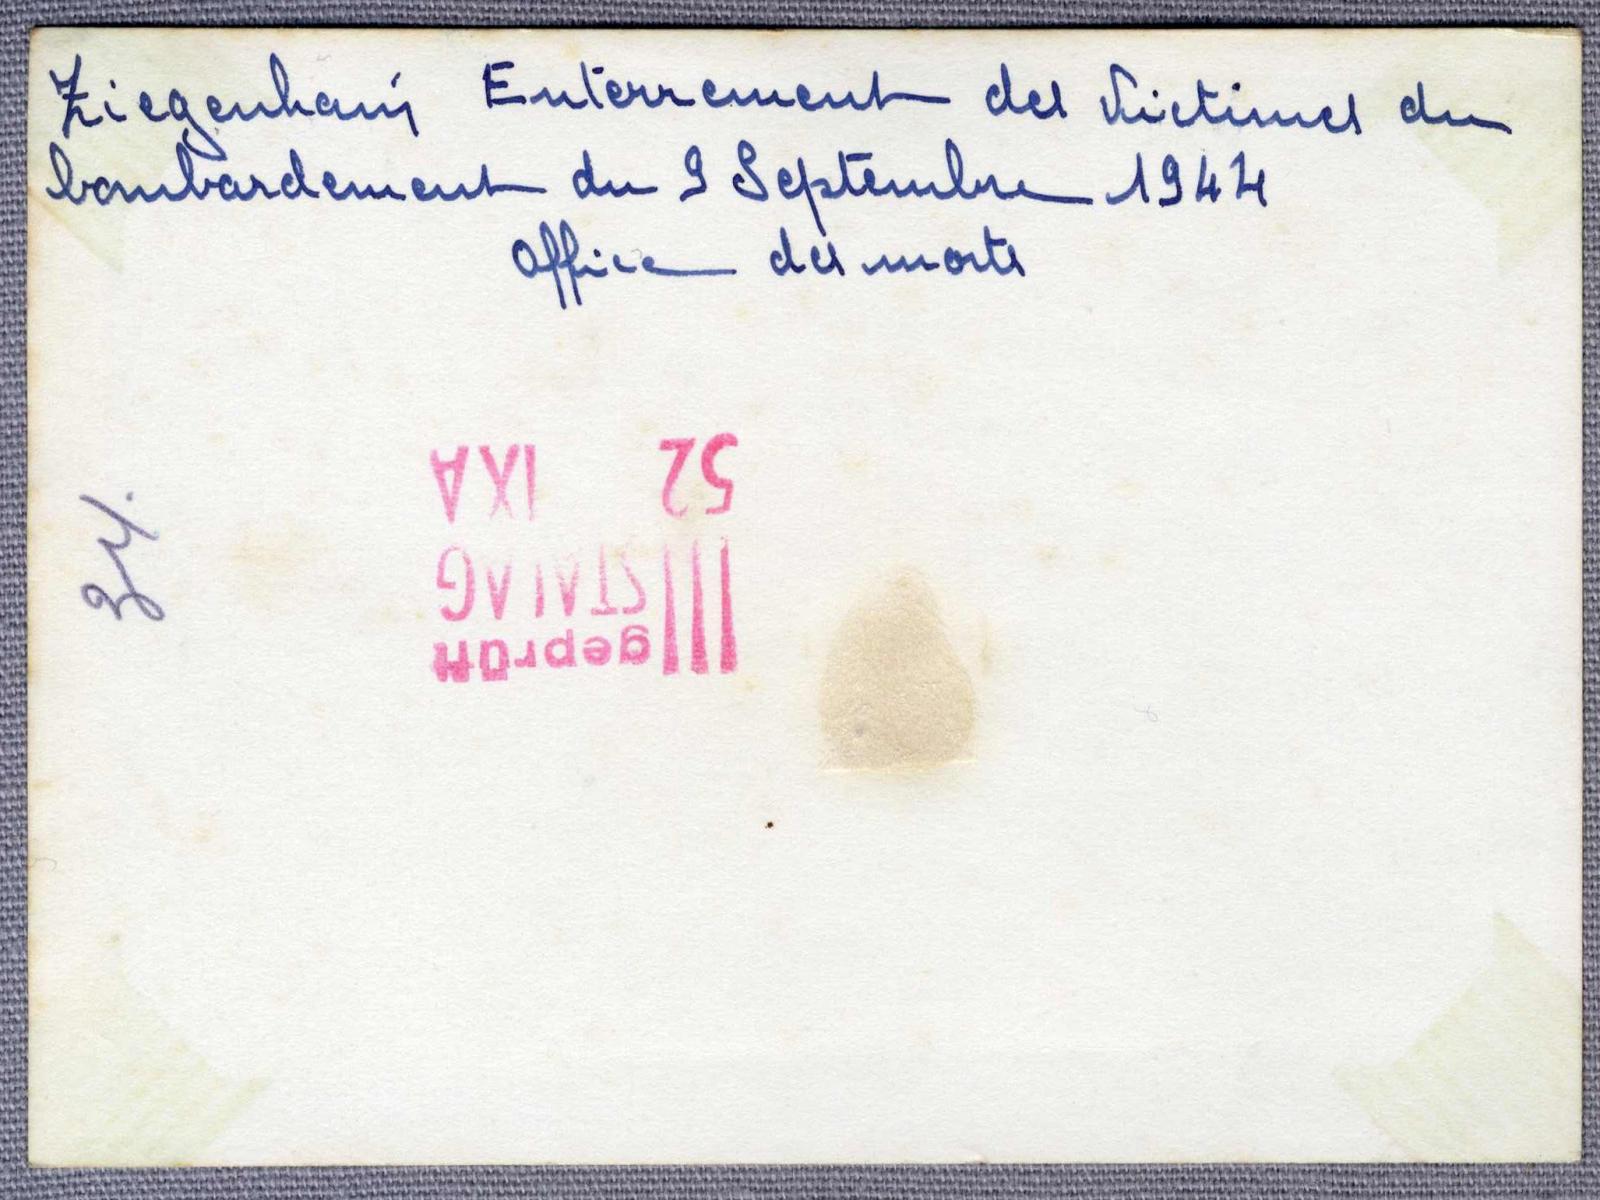 Ziegenhain Enterrement des Victimes du
bombardement du 9 Septembre 1944
Office des morts
geprüft
STALAG
52 IXA